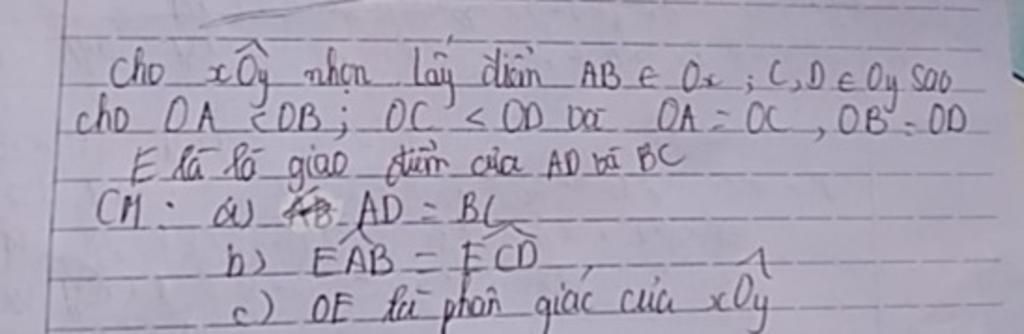 Cho xÔy nhọn lấy điểm AB ∈ Ox ; C, D ∈ Oy sao
cho OA < OB ; OC < OD và OA = OC , OB = OD
E là là giao điểm của AD và BC
CM : a) AD = BC
b) EÂB = EĈD
c) OE là phân giác của xÔy